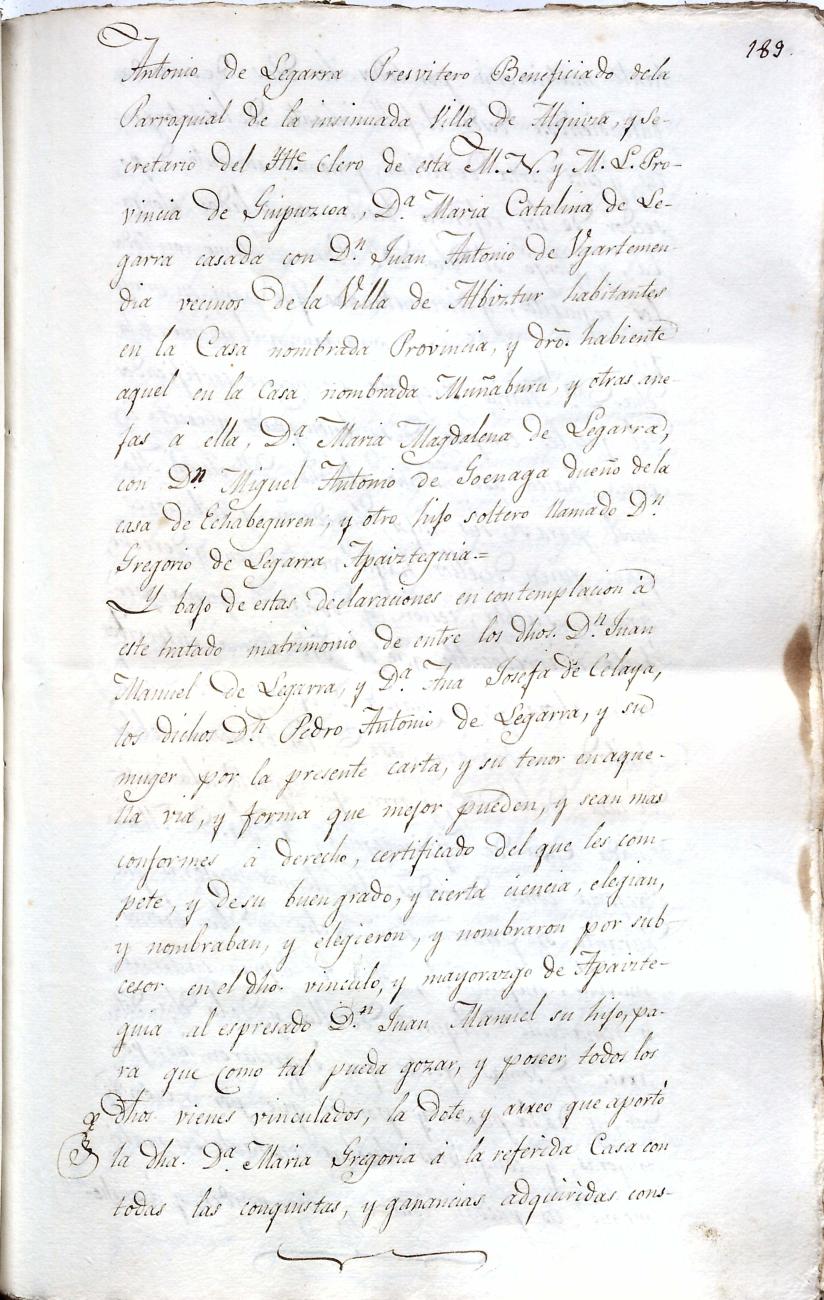 189.
Antonio de Legarra Presvitero Beneficiado dela
Parroquial de la insinuada Villa de Alquiza, y se-
cretario del Itte. Clero de esta M. N. y M. L. Pro-
vincia de Guipuzcoa, D.a Maria Catalina de Le-
garra casada con D.n Juan Antonio de Vgartemen-
dia vecinos de la Villa de Albiztur habitantes
en la Casa nombrada Provincia, y dro. habiente
aquel en la Casa nombrada Muñaburu, y otras ane-
jas á ella, D.a Maria Magdalena de Legarra,
con Dn Miguel Antonio de Goenaga dueño dela
casa de Echabeguren, y otro hijo soltero llamado D.n
Gregorio de Legarra Apaizteguia.=
Y bajo de estas declaraciones en contemplacion á
este tratado matrimonio de entre los dhos. D.n Juan
Manuel de Legarra, y D.a Ana Josefa de Celaya,
los dichos D.n Pedro Antonio de Legarra, y su
muger por la presente carta, y su tenor en aque-
lla via, y forma que mejor pueden, y sean mas
conformes á derecho, certificado del que les com-
pete, y desu buen grado, y cierta ciencia, elegian,
y nombraban, y elegieron, y nombraron por sub-
cesor en el dho. vinculo, y mayorazgo de Apaizte-
guia al espresado D.n Juan Manuel su hijo, pa-
ra que como tal pueda gozar, y poseer todos los
dhos. vienes vinculados, la dote, y arreo que aportó
la dha. D.a Maria Gregoria á la referida Casa con
todas las conquistas, y ganancias adquiridas cons-